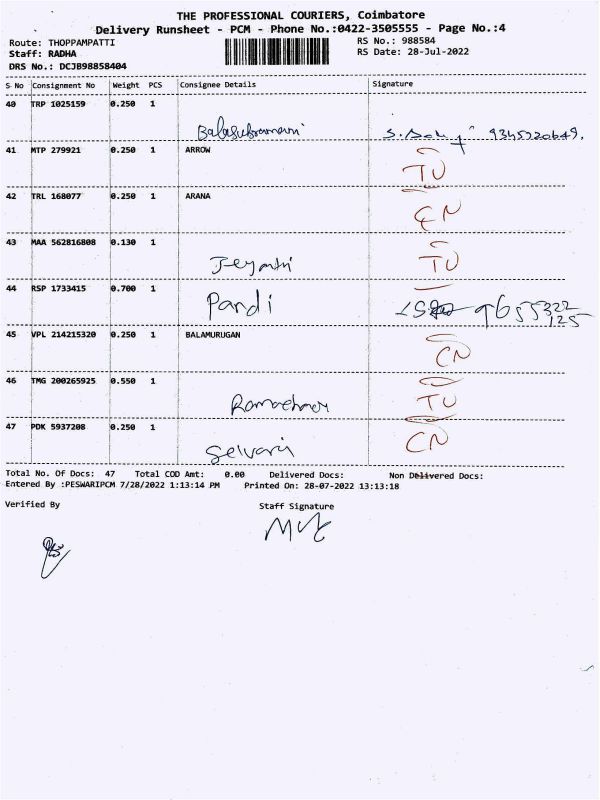 THE PROFESSIONAL COURIERS, Coimbatore
Delivery Runsheet - PCM - Phone No.:0422-3505555 - Page No.:4
Route: THOPPAMPATTI
RS No.: 988584
Staff: RADHA
RS Date: 28-Jul-2022
DRS No.: DCJB98858404
S No Consignment No Weight PCS Consignee Details Signature
40 TRP 1025159 0.250 1
Balasubramani 9345720649.
41 MTP 279921 0.250 1 ARROW
TU
42 TRL 168077 0.250 1 ARANA
CN
43 MAA 562816808 0.130 1
Jeyanthi TU
44 RSP 1733415 0.700 1
Pandi 9655322
125
45 VPL 214215320 0.250 1 BALAMURUGAN
CN
46 TMG 200265925 0.550 1
TU
47 PDK 5937208 0.250 1
CN
Total No. Of Docs: 47 Total COD Amt: 0.00 Delivered Docs: Non Delivered Docs:
Entered By :PESWARIPCM 7/28/2022 1:13:14 PM Printed On: 28-07-2022 13:13:18
Verified By Staff Signature